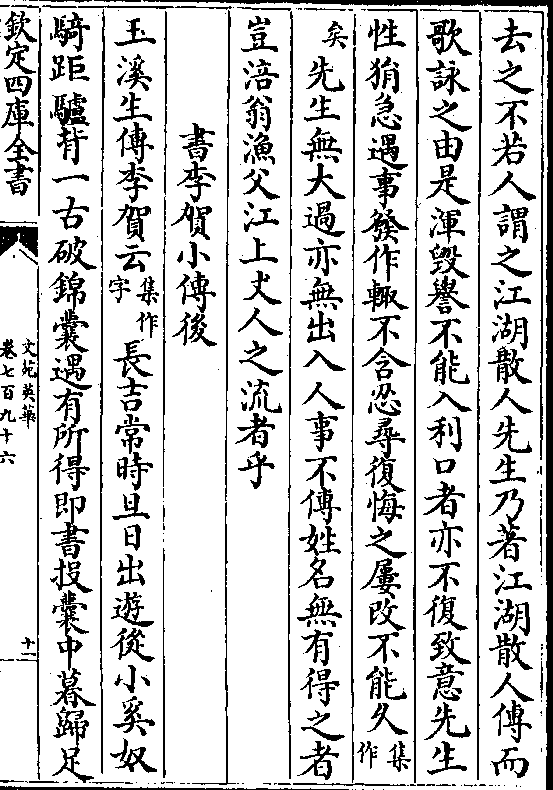 去之不若人謂之江湖散人先生乃著江湖散人傳而
歌詠之由是渾毀譽不能入利口者亦不復致意先生
性狷急遇事發作輒不含忍尋復悔之屢改不能久集作
矣先生無大過亦無出入人事不傳姓名無有得之者
豈涪翁漁父江上丈人之流者乎
書李賀小傳後
玉溪生傳李賀云集作字長吉常時旦日出遊從小奚奴
騎距驢背一古破錦囊遇有所得即書投囊中暮歸足
欽定四庫全書
文苑英華
卷七百九十六
十一